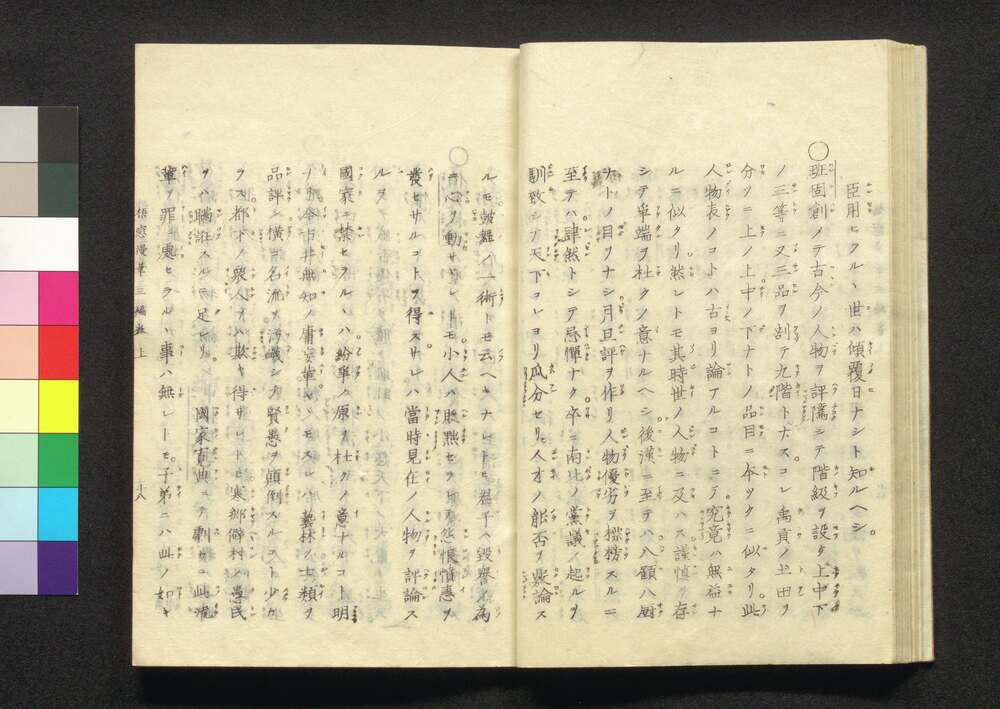 臣用ヒラルヽ世ハ傾覆日ナシト知ルヘシ
○班固創メテ古今ノ人物ヲ評隲シテ階級ヲ設ケ上中下
ノ三等ニ又三品ヲ割テ九階トナスコレ禹貢ノ土田ヲ
分ツニ上ノ上中ノ下ナトノ品目ニ本ツクニ似タリ此
人物表ノコトハ古ヨリ論アルコトニテ究竟ハ無益ナ
ルニ似タリ然レトモ其時世ノ人物ニ及ハス謹慎ヲ存
シテ卑端ヲ杜クノ意ナルヘシ後漢ニ至テハ八顧八厨
ナトノ目ヲナシ月旦評ヲ作リ人物優劣ヲ標榜スルニ
至テハ肆然トシテ忌憚ナク卒ニ南北ノ黨議ヲ起ルヲ
馴致シテ天下コレヨリ瓜分セリ人才ノ能否ヲ鼎論ス
ルモ鼓舞ノ一術トモ云ヘキナレトモ君子ハ毀誉ノ為
○ニ心ヲ動サヽレトモ小人ハ貶黙セラ怨恨憤恚ヲ
發セサルコトヲ得スサレハ當時見在ノ人物ヲ評論ス
ルヲ
國家ニ禁セラルヽハ紛爭ノ原ヲ杜クノ意ナルコト明
ノ市井無知ノ庸妄輩ヤヽモスレハ藝林ノ士類ヲ
品評シ横ニ名流ヲ汚衊シテ賢愚ヲ顛倒スルコト少カ
ラス都下ノ衆人ヲハ欺キ得サレトモ寒郷僻村ノ愚民
ヲハ瞞誑スルニ足レリ 國家寛典ニテ此流
輩ヲ罪ニ處セラルヽ事ハ無レトモ子弟ニハ此ノ如キ
漫筆三編 上
十八